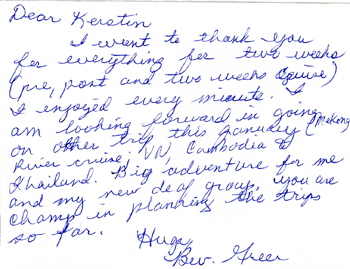 Dear Kerstin
I want to thank you
for everything for two weeks
(pre, post and two weeks Cruise)
I enjoyed every minute. I
am looking forward in going
on other trip this January (Mekong
River cruise, VN, Cambodia &
Thailand. Big adventure for me
and my new deaf group. You are
champ in planning the trips
so far. Hugs,
Bev. Greer